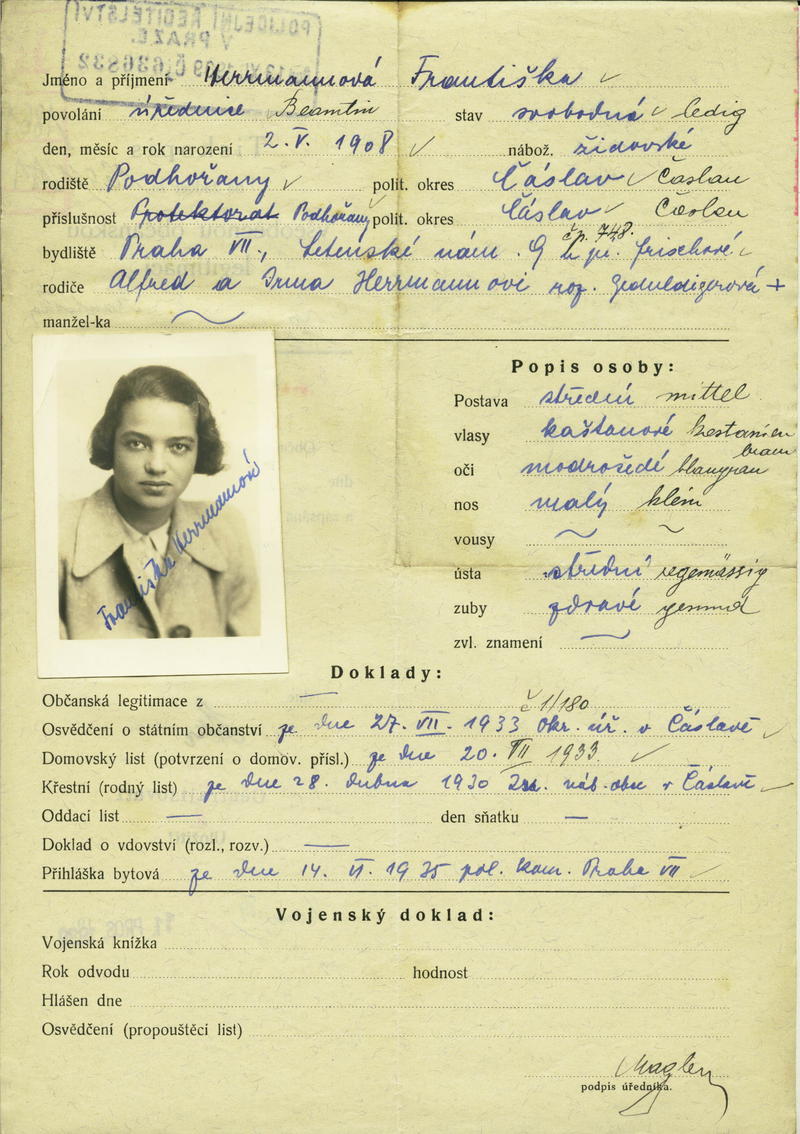 POLICEJNÍ ŘEDITELSTVÍ
V PRAZE.
Jméno a příjmení Herrmannová Františka
povolání úřednice Beamtin stav svobodná ledig
den, měsíc a rok narození 2. V. 1908 nábož. židovské
rodiště Podhořany polit. okres Čáslav Časlau
příslušnost Protektorat Podhořany polit. okres Čáslav Časlau
čp. 748.
bydliště Praha VII., Letenské nám. 9
rodiče Alfred a Irma Herrmannovi roz. Geduldigerová +
manžel-ka
Popis osoby:
Postava střední mittel
vlasy kaštanové kastanien
braun
oči modrošedé blaugrau
nos malý klein
vousy
ústa střední regemässig
zuby zdravé gesund
zvl. znamení
Františka Herrmannová
Doklady:
Občanská legitimace z
č 1/180
Osvědčení o státním občanství ze dne 27. VII. 1933 okr. úř. v Čáslavi
Domovský list (potvrzení o domov. přísl.) ze dne 20. VII 1933.
Křestní (rodný list) ze dne 28. dubna 1930 Isr. náb. obce v Čáslavi
Oddací list — den sňatku —
Doklad o vdovství (rozl., rozv.) —
Přihláška bytová ze dne 14. VI. 1935 pol. kom. Praha VII
Vojenský doklad:
Vojenská knížka
Rok odvodu hodnost
Hlášen dne
Osvědčení (propouštěcí list)
podpis úředníka.